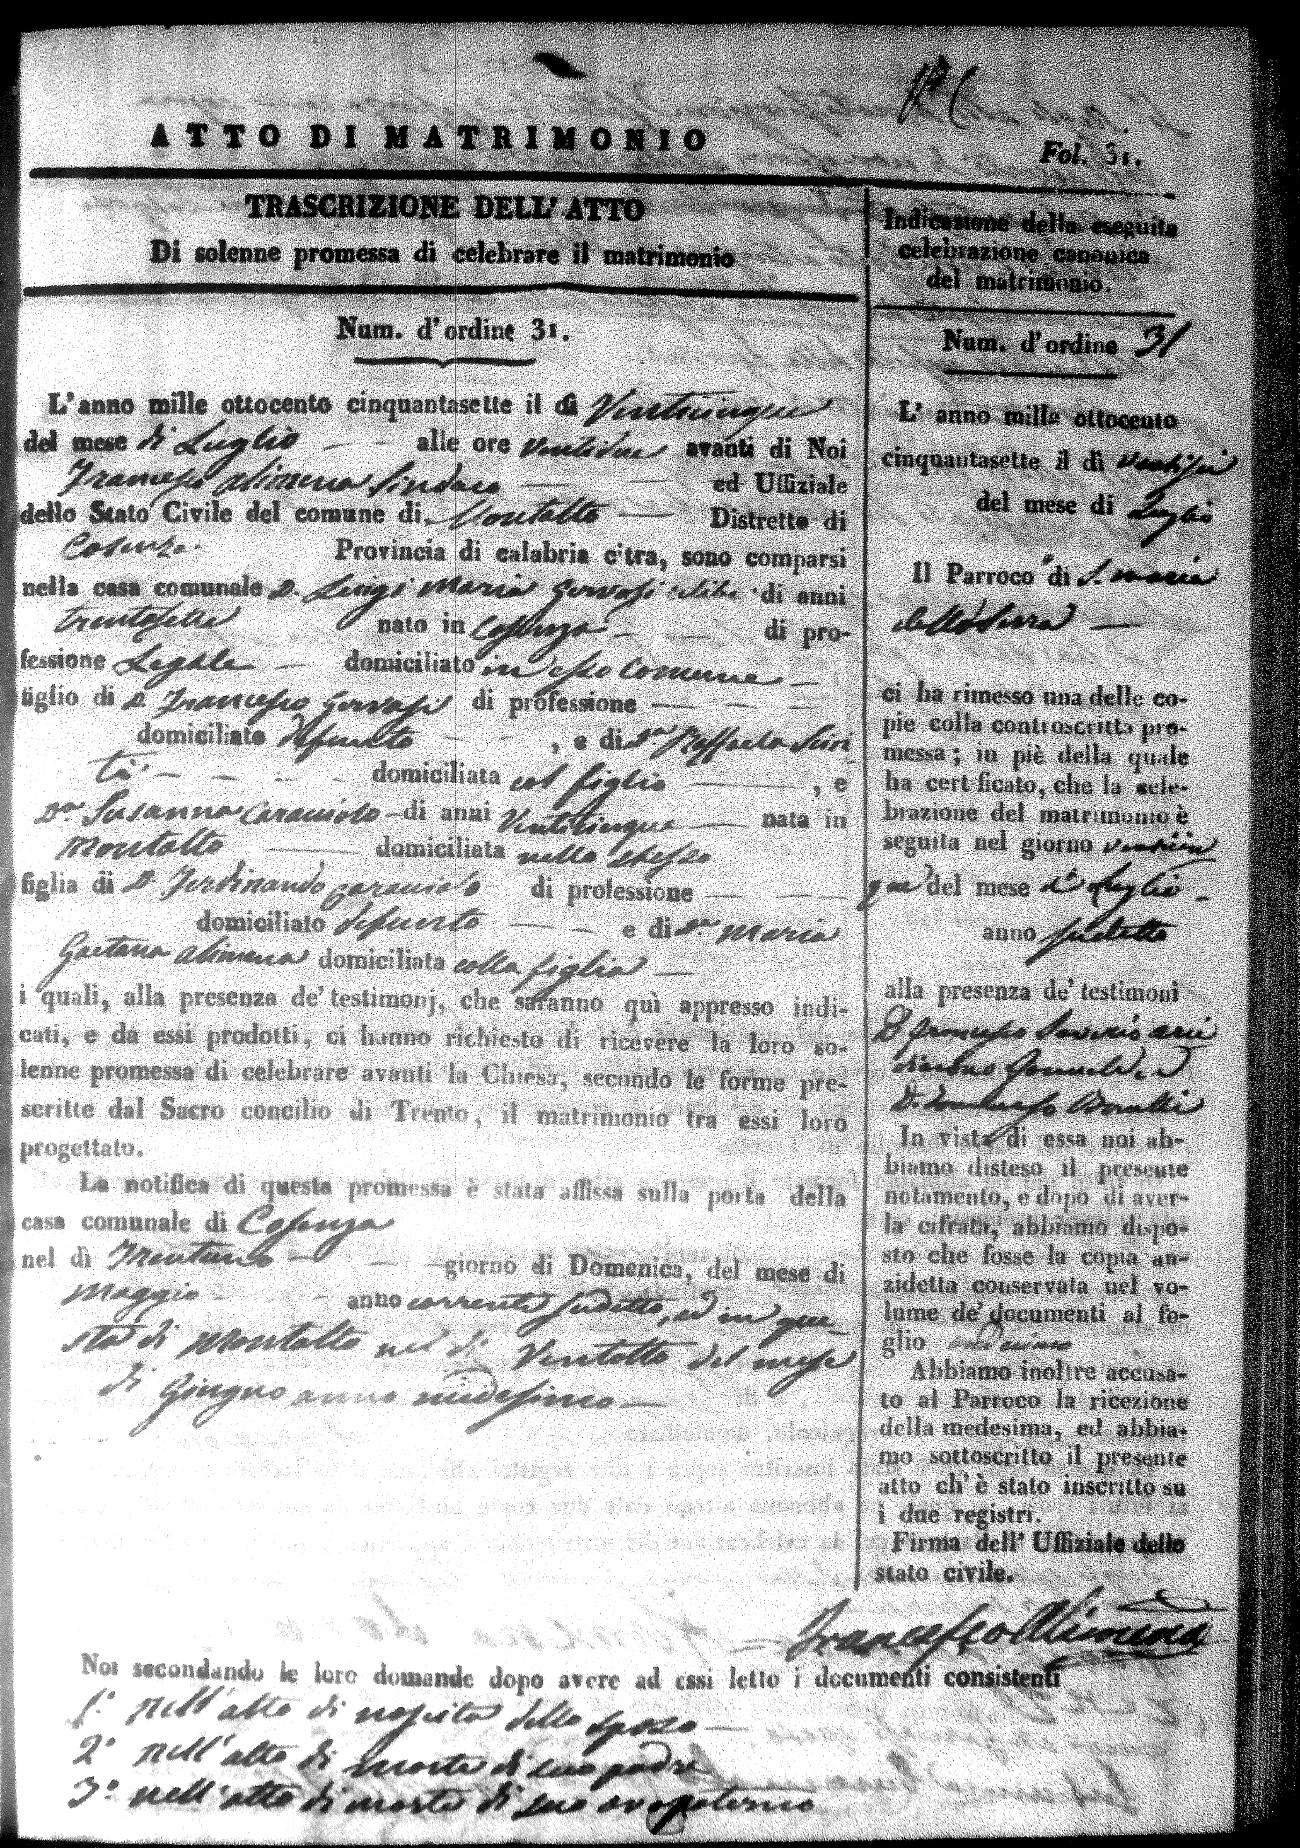 ATTO DI MATRIMONIO
Fol. 31.
TRASCRIZIONE DELL' ATTO
Di solenne promessa di celebrare il matrimonio
Num. d'ordine 31.
L'anno mille ottocento cinquantasette il dì Venticinque
del mese di Luglio alle ore ventidue avanti di Noi
Francesco Alimena Sindaco ed Uffiziale
dello Stato Civile del comune di Montalto Distretto di
Cosenza Provincia di calabria c'tra, sono comparsi
nella casa comunale D. Luigi Maria Gervasi celibe di anni
trentasette nato in Cosenza di pro-
fessione Legale domiciliato in esso Comune
figlio di D. Francesco Gervasi di professione
domiciliato defunto , e di D.na Raffaela
domiciliata col figlio , e
D.na Susanna Caracciolo di anni Venticinque nata in
Montalto domiciliata nello stesso
figlia di D. Ferdinando Caracciolo di professione
domiciliato defunto e di D.na Maria
Gaetana Alimena domiciliata colla figlia
i quali, alla presenza de' testimonj, che saranno quì appresso indi-
cati, e da essi prodotti, ci hanno richiesto di ricevere la loro so-
lenne promessa di celebrare avanti la Chiesa, secondo le forme pre-
scritte dal Sacro concilio di Trento, il matrimonio tra essi loro
progettato.
La notifica di questa promessa è stata affissa sulla porta della
casa comunale di Cosenza
nel dì Trentuno giorno di Domenica, del mese di
Maggio anno corrente sudetto, ed in que
sta di Montalto nel dì Ventotto del mese
di Giugno anno medesimo
Indicazione della eseguita
celebrazione canonica
del matrimonio.
Num. d'ordine 31
L' anno mille ottocento
cinquantasette il dì ventisei
del mese di Luglio
Il Parroco di S. Maria
della Serra
ci ha rimesso una delle co-
pie colla controscritta pro-
messa; in piè della quale
ha cert ficato, che la cele-
brazione del matrimonio è
seguita nel giorno venticin
que del mese di Luglio
anno sudetto
alla presenza de' testimoni
D. Francesco Saverio arci
diacono
D. Domenico
In vista di essa noi ab-
biamo disteso il presente
notamento, e dopo di aver-
la cifrata, abbiamo dispo-
sto che fosse la copia an-
zidetta conservata nel vo-
lume de' documenti al fo-
glio
Abbiamo inoltre accusa-
to al Parroco la ricezione
della medesima, ed abbia-
mo sottoscritto il presente
atto ch' è stato inscritto su
i due registri.
Firma dell' Uffiziale dello
stato civile.
Francesco Alimena
Noi secondando le loro domande dopo avere ad essi letto i documenti consistenti
1.° nell'atto di nascita dello sposo
2.° nell'atto di morte di suo padre
3.° nell'atto di morte di suo avo paterno